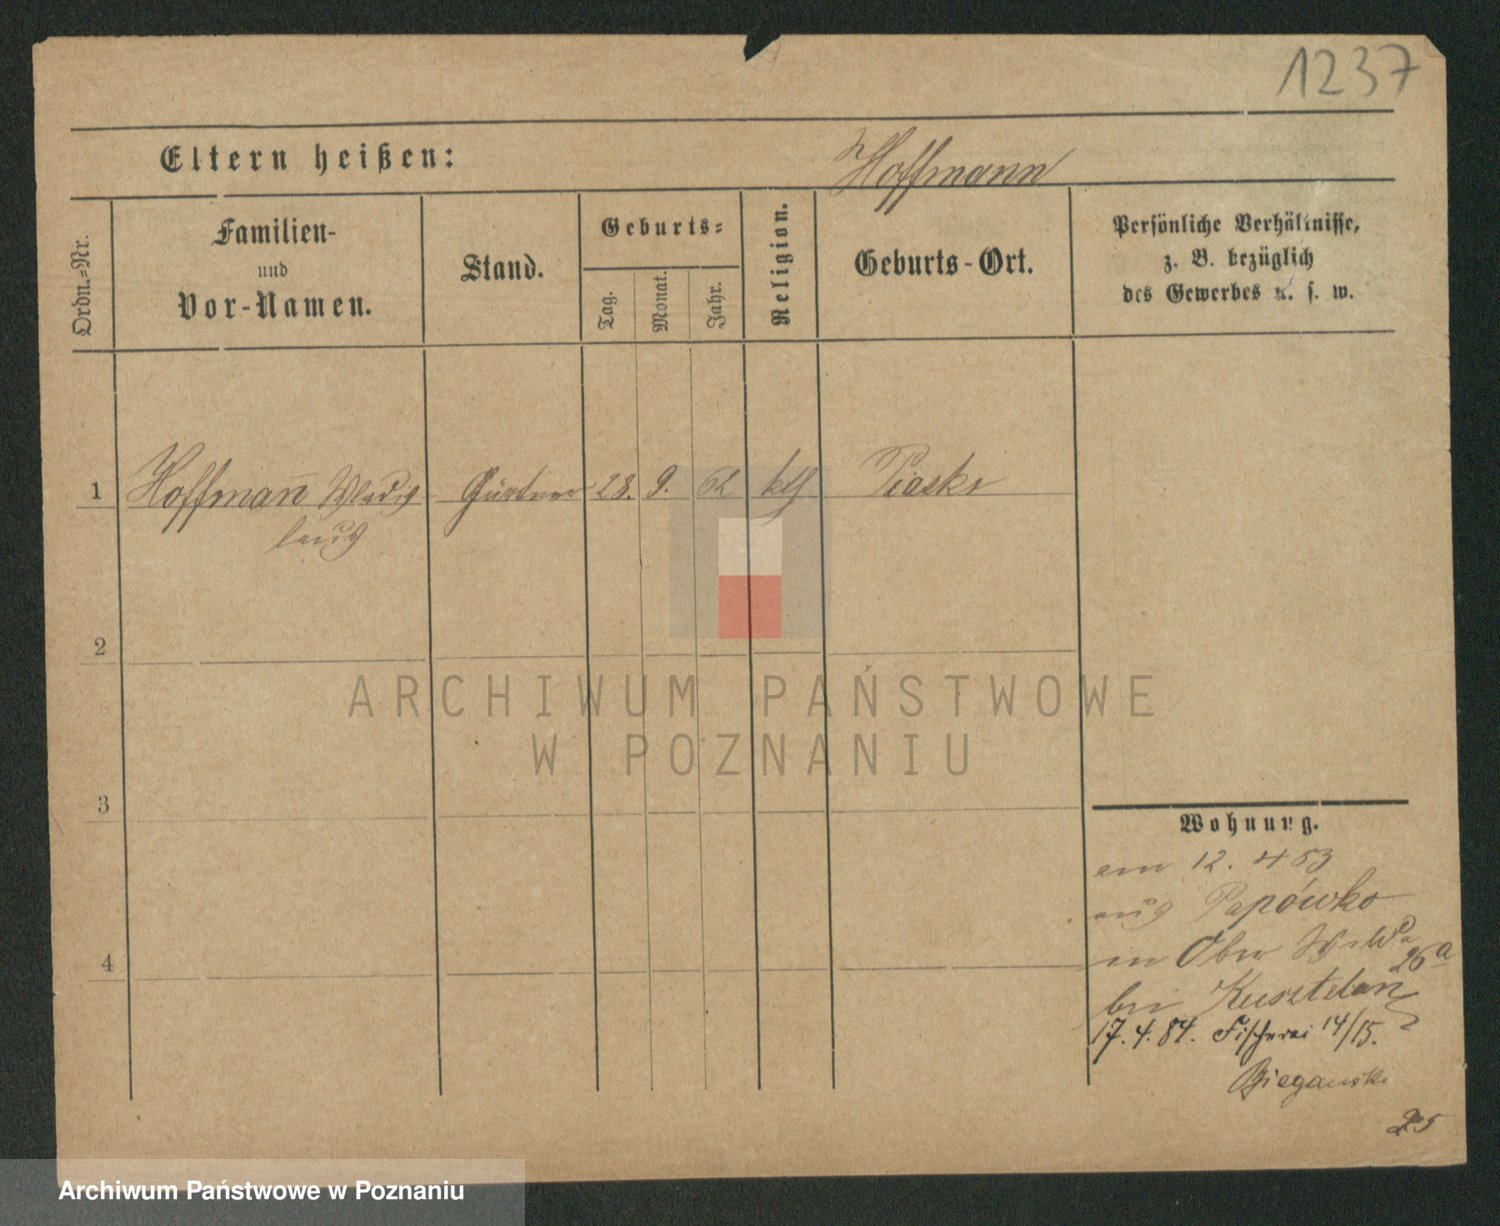 1237
Eltern heißen:
Hoffmann
Ordn.=Nr.
Familien-
und
Vor-Namen.
Stand.
Geburts=
Tag.
Monat.
Jahr.
Religion.
Geburts-Ort.
Persönliche Verhältnisse,
z. B. bezüglich
des Gewerbes u. s. w.
1 Hoffmann Wladis Gärtner 28. 9. 62 kth Piaski
laus
2
3
4
ARCHIWUM PAŃSTWOWE
W POZNANIU
Wohnung.
am 12. 4 83
aus Papówko
in Ober Wilda
26a
bei Kusztelan
17. 4. 84. Fischerei 14/15.
Bieganski
25
Archiwum Państwowe w Poznaniu